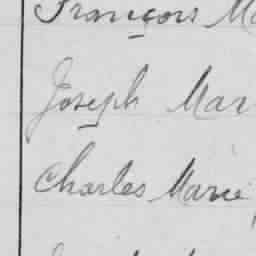 François Ma
Joseph Mar
Charles Marie